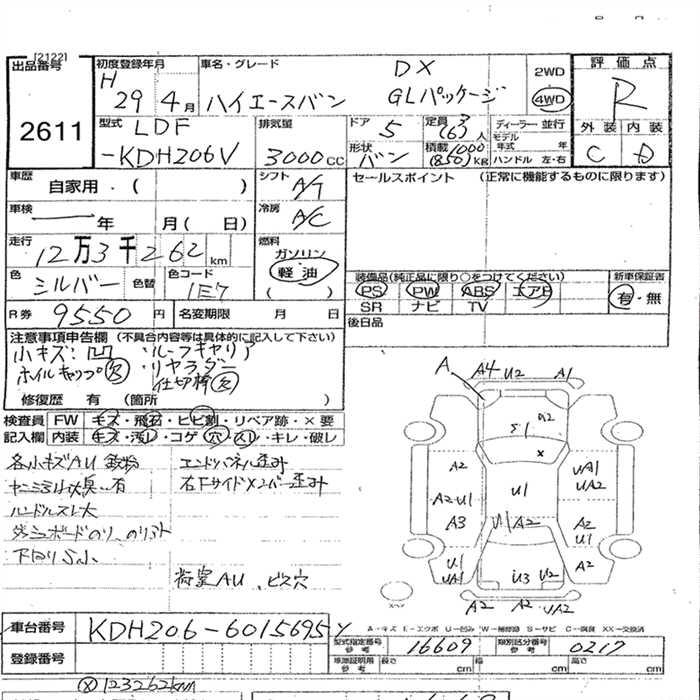 [2122]
出品番号 初度登録年月 車名・グレード DX 2WD 評価点
H 29年4月 ハイエースバン GLパッケージ 4WD R
2611 型式 LDF 排気量 ドア 5 定員 3(6)人 ディーラー・並行 外装 内装
-KDH206V 3000CC 形状 バン 積載 1000(850)KR モデル年式 年 ハンドル 左・右 C D
車歴 自家用・( ) シフト A/T セールスポイント (正常に機能するものに限ります)
車検 年 月( 日) 冷房 A/C
走行 12万3千262km 燃料 ガソリン
色 シルバー 色替 色コード 1E7 軽油 ( ) 装備品(純正品に限り○をつけてください) 新車保証書
PS PW ABS エアB 有・無
R券 9550円 名変期限 月 日 SR ナビ TV
後日品
注意事項申告欄 (不具合内容等は具体的に記入して下さい)
小キズ・凹 ・ルーフキャリア
ホイルキャップ欠 ・リヤラダー
仕切棒欠
修復歴 有 (箇所 )
検査員 FW キズ・飛石・ヒビ割・リペア跡・X要
記入欄 内装 キズ・汚レ・コゲ・穴・スレ・キレ・破レ
各小キズAU エンドパネル歪み
右Fサイドメンバー歪み
ハンドルスレ大
下回りS小
荷室AU、ビス穴
A A4 U2 A1
A2
S1
X
A2 U1 UA1
UA2
A2U1
A3 U1A2 A2
U1
U1 A2
UA1 U3 U2
A2 A2 UA2
A-キズ E-エクボ U-凹み W-補修跡 S-サビ C-腐食 XX-交換済
車台番号 KDH206-6015695Y 型式指定番号 参考 16609 類別区分番号 参考 0217
登録番号 車庫証明用 参考 長さ cm 幅 cm 高さ cm
Ⓧ123262km